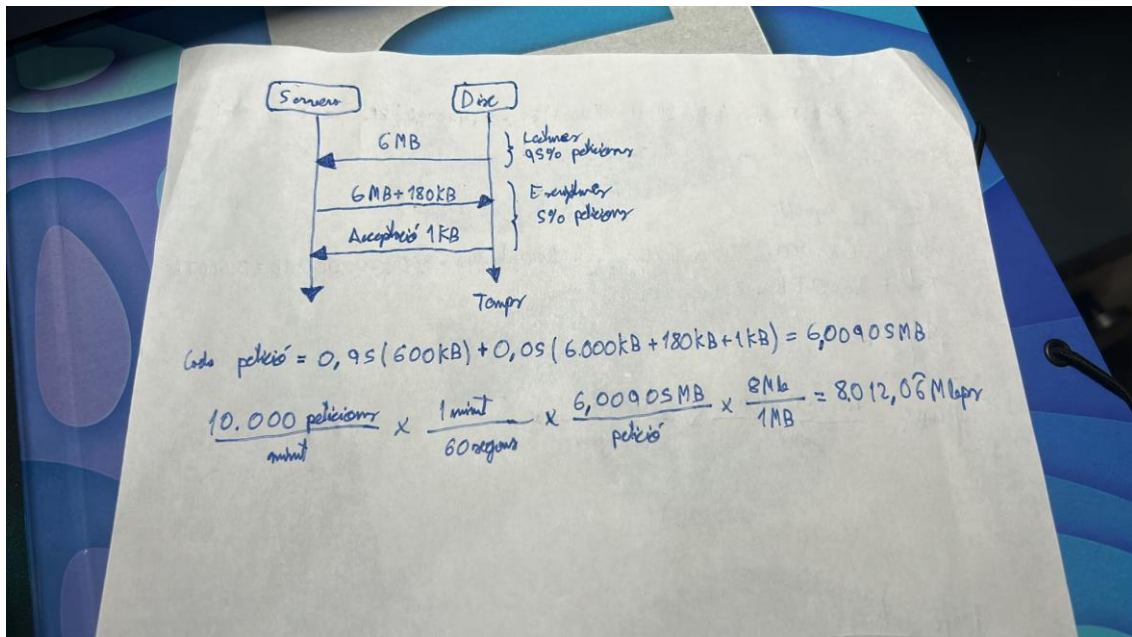 Servers Disc
6 MB
Lectures
95% peticions
6 MB + 180KB
Escriptures
5% peticions
Acceptació 1KB
Temps
Cada petició = 0,95(600KB) + 0,05(6.000KB + 180KB + 1KB) = 6,00905MB
10.000 peticions / minut × 1 minut / 60 segons × 6,00905MB / petició × 8Mb / 1MB = 8.012,06Mbps